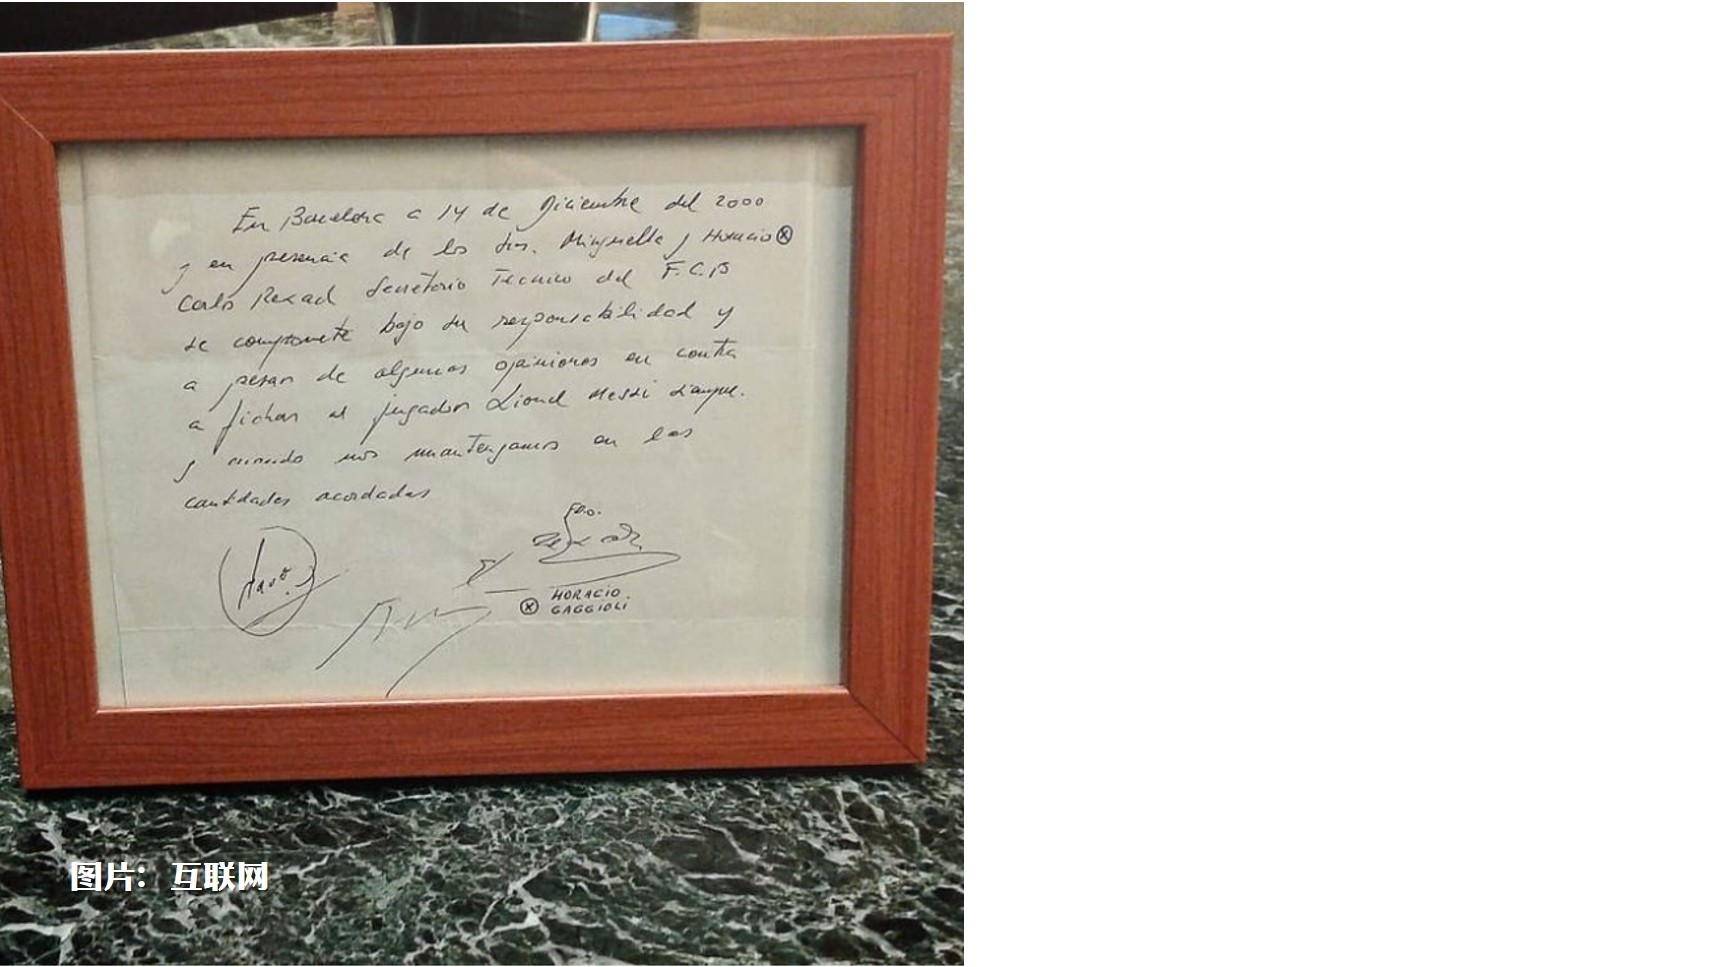 En Barcelona a 14 de Diciembre del 2000
y en presencia de los Srs. Minguella y Horacio ⓧ
Carlos Rexach Secretario Tecnico del F.C.B
se compromete bajo su responsabilidad y
a pesar de algunas opiniones en contra
a fichar al jugador Lionel Messi siempre.
y cuando nos mantengamos en las
cantidades acordadas
FDO.
ⓧ HORACIO
GAGGIOLI
图片：互联网